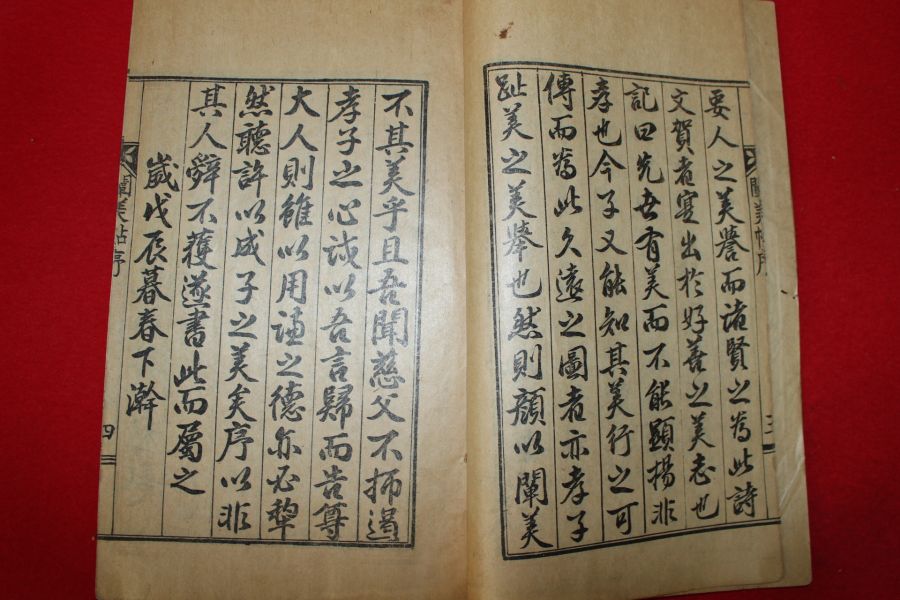 要人之美譽而諸賢之爲此詩
文賀者寔出於好善之美志也
記曰先世有美而不能顯揚非
孝也今子又能知其美行之可
傳而爲此久遠之圖者亦孝子
趾美之美擧也然則顔以闡美
不其美乎且吾聞慈父不拂過
孝子之心試以吾言歸而告尊
大人則雖以用謙之德亦必犁
然聽許以成子之美矣序以非
其人辭不獲遂書此而屬之
歲戊辰暮春下澣
闡美帖序
三
闡美帖序
四